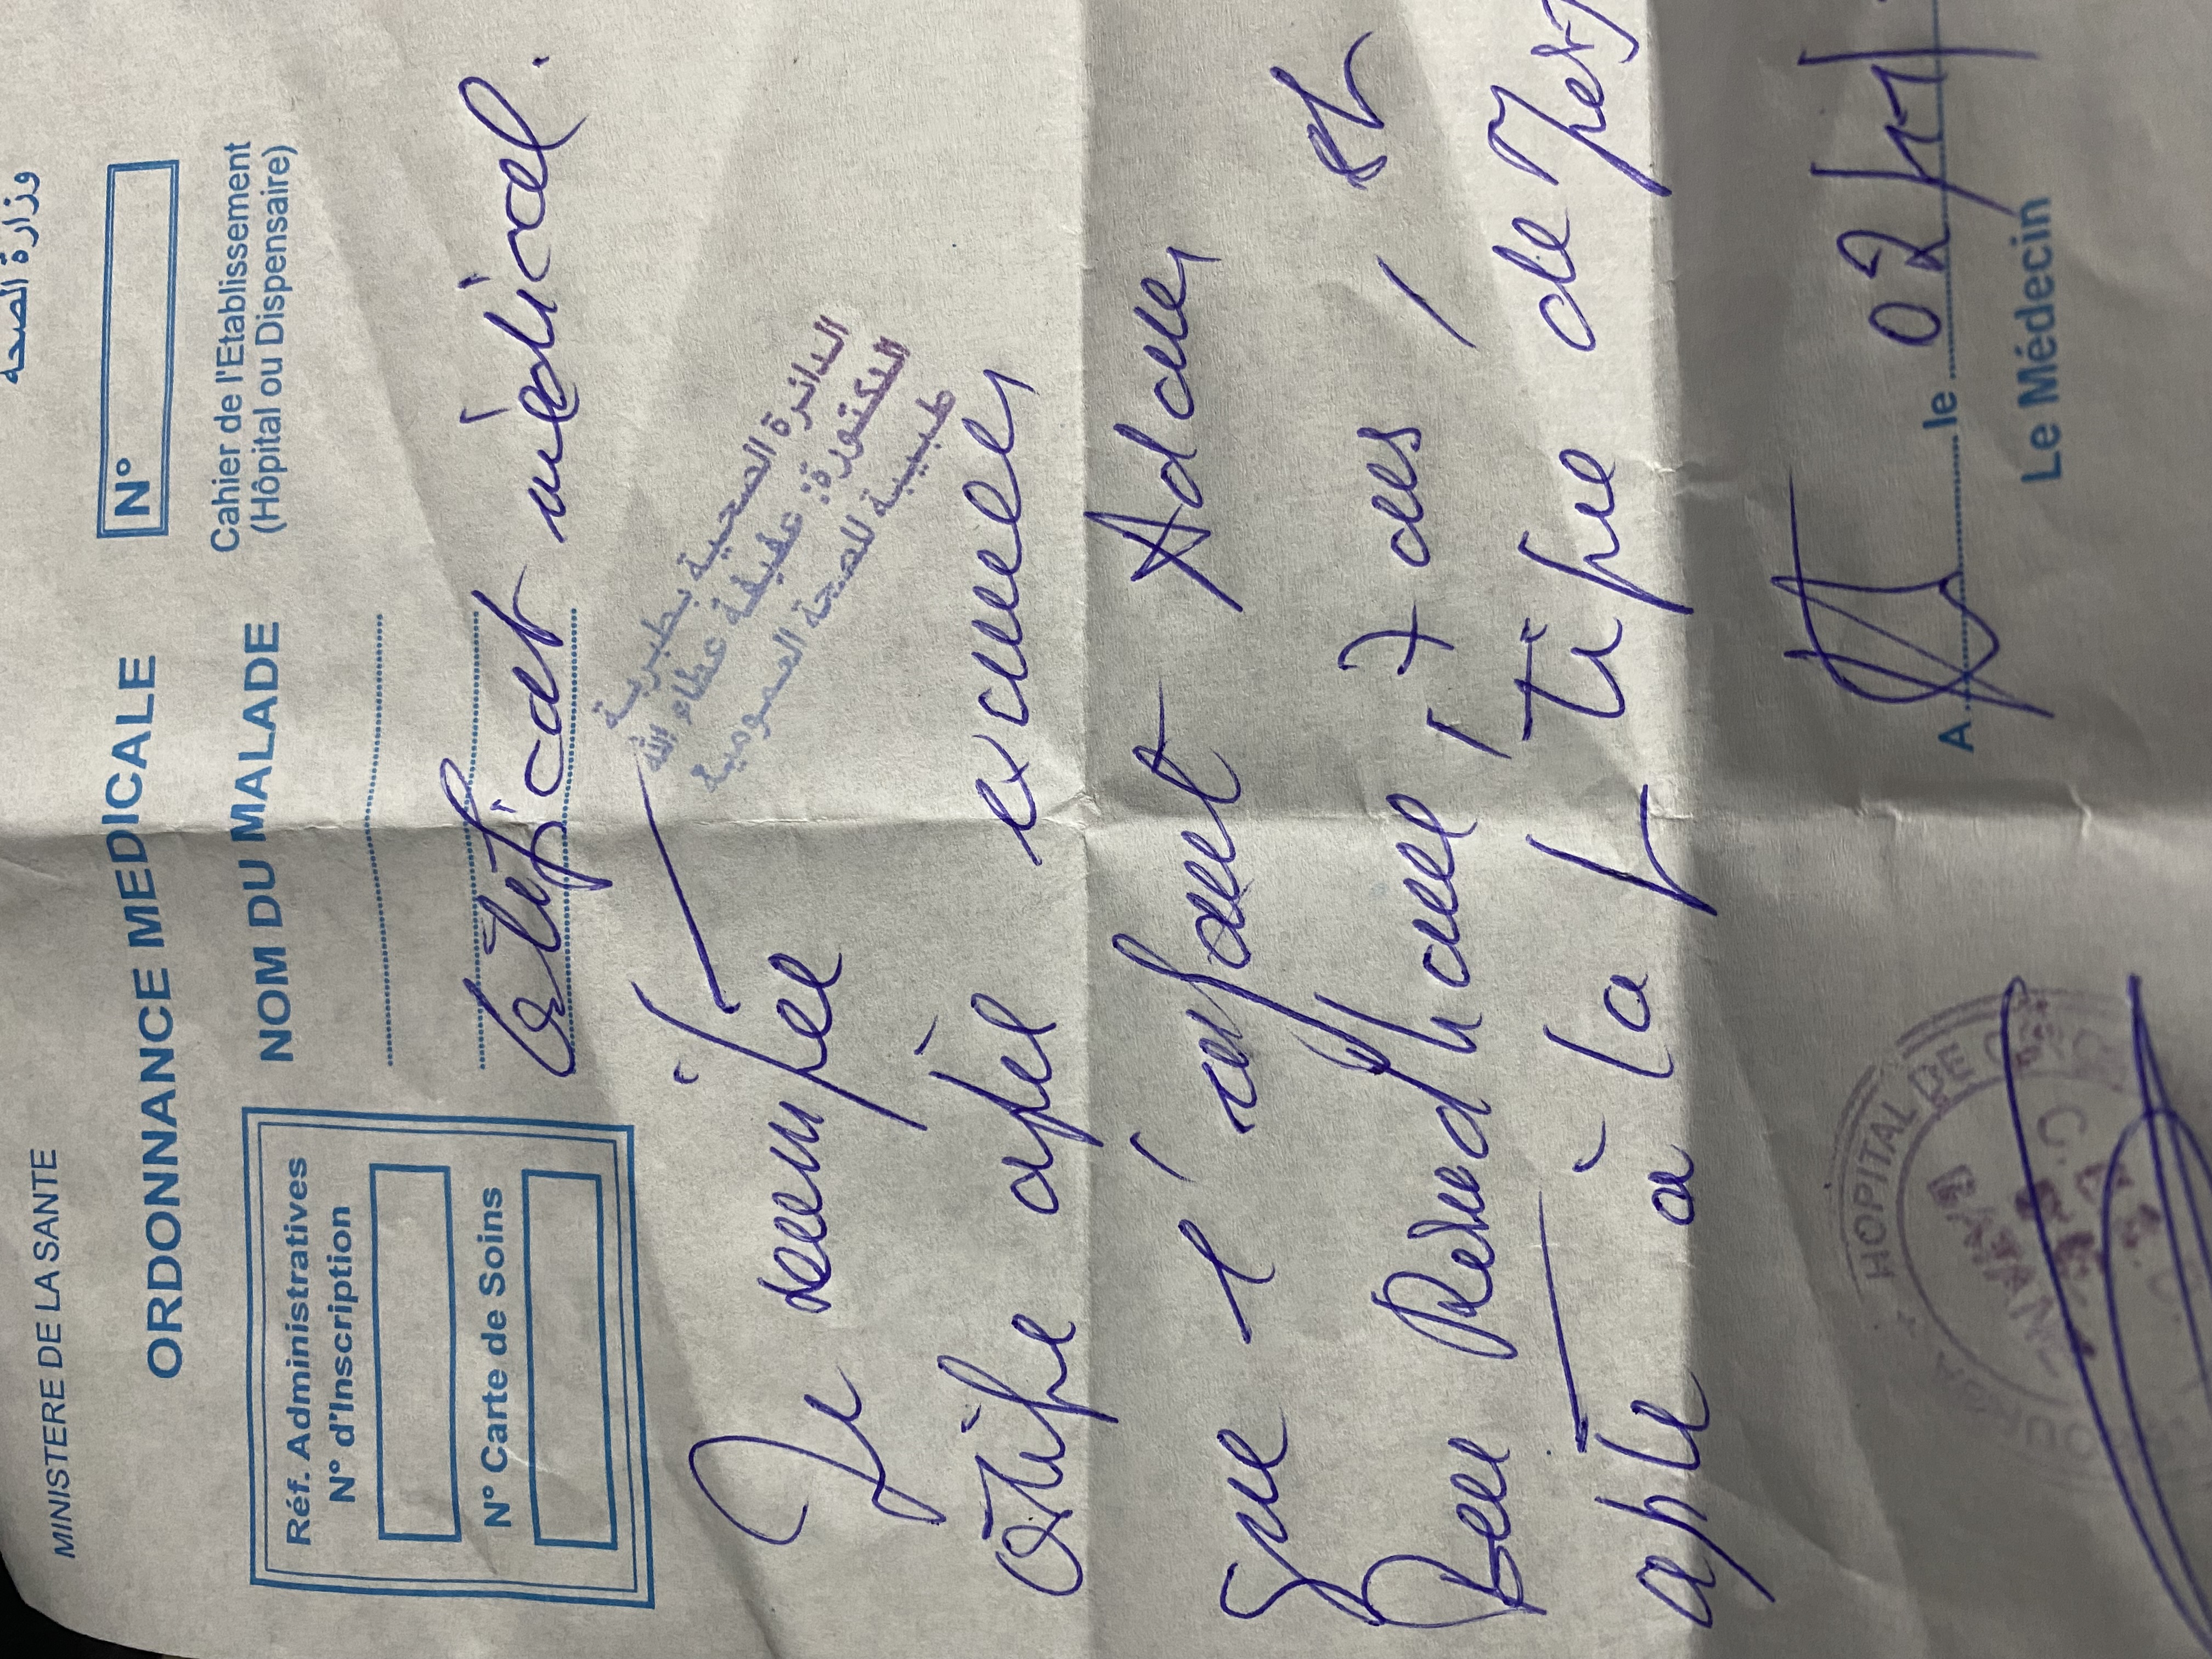 وزارة الصحة
MINISTERE DE LA SANTE
ORDONNANCE MEDICALE
N°
Réf. Administratives
N° d'Inscription
N° Carte de Soins
NOM DU MALADE
Cahier de l'Etablissement
(Hôpital ou Dispensaire)
Certificat médical.
الدائرة الصحية بطبربة
الدكتورة: عفيفة عطاء الله
طبيبة للصحة العمومية
Je
certifie après examen
que l'enfant Adam
Ben Romdhane, 7 ans, est
apte à la
de
A le 02/11
Le Médecin
HOPITAL DE